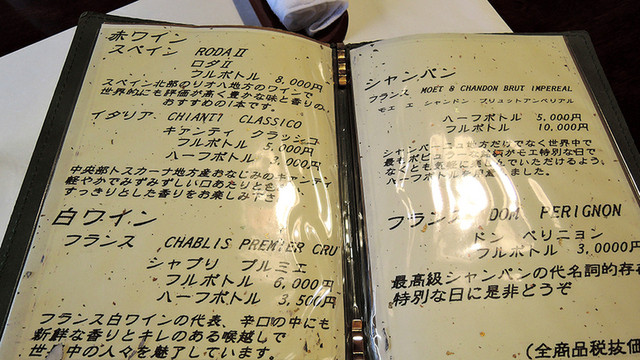 赤ワイン
スペイン RODAⅡ
ロダⅡ
フルボトル 8,000円
スペイン北部のリオハ地方のワインで
世界的にも評価が高く豊かな味と香りの、
おすすめの1本です。
イタリア CHIANTI CLASSICO
キャンティ クラッシコ
フルボトル 5,000円
ハーフボトル 3,000円
中央部トスカーナ地方産おなじみのキャンティ
軽やかでみずみずしい口あたりと
すっきりとした香りをお楽しみ下さ
白ワイン
フランス CHABLIS PREMIER CRU
シャブリ プルミエ
フルボトル 6,000円
ハーフボトル 3,500円
フランス白ワインの代表、辛口の中にも
新鮮な香りとキレのある喉越しで
世界中の人々を魅了しています。
シャンパン
フランス MOET & CHANDON BRUT IMPEREAL
モエエ シャンドン ブリュットアンペリアル
ハーフボトル 5,000円
フルボトル 10,000円
シャンパーニュ地方だけでなく世界中で
最もポピュ がモエ特別な日で
なくとも気軽に いただけるよう、
ハーフボトルを ました。
フランス DOM PERIGNON
ドン ペリニョン
フルボトル 3,0000円
最高級シャンパンの代名詞的存
特別な日に是非どうぞ
(全商品税抜価